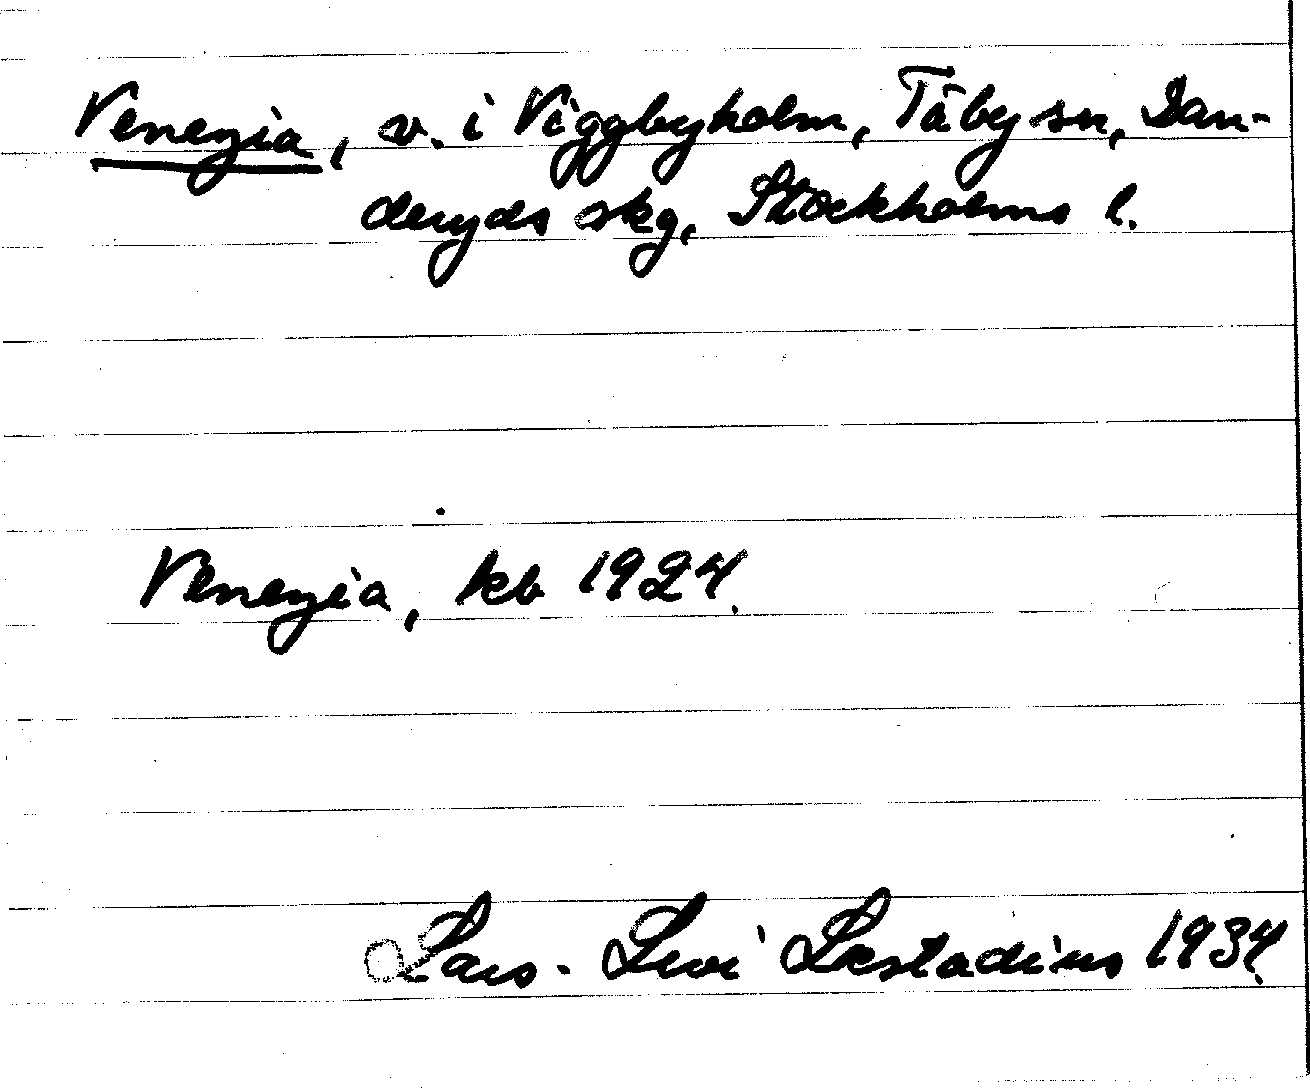 Venezia, v. i Viggbyholm, Täby sn, Dan-
deryds skg, Stockholms l.
Venezia, kb 1924.
Lars-Levi Læstadius 1934.